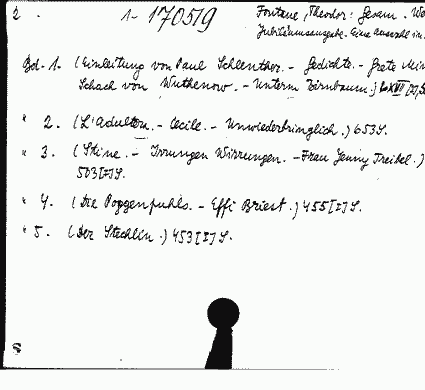 2. 1-170519 Fontane, Theodor: Gesam. We
Jubiläumsausgabe. Eine Auswahl in
Bd. 1. (Einleitung von Paul Schlenther. - Gedichte. - Grete Min
Schach von Wuthenow. - Unterm Birnbaum.)
" 2. (L'Adultera. - Cecile. - Unwiederbringlich.) 653 S.
" 3. (Stine. - Irrungen Wirrungen. - Frau Jenny Treibel.)
503 [I] S.
" 4. (Die Poggenpuhls. - Effi Briest.) 455 [I] S.
" 5. (Der Stechlin.) 453 [I] S.